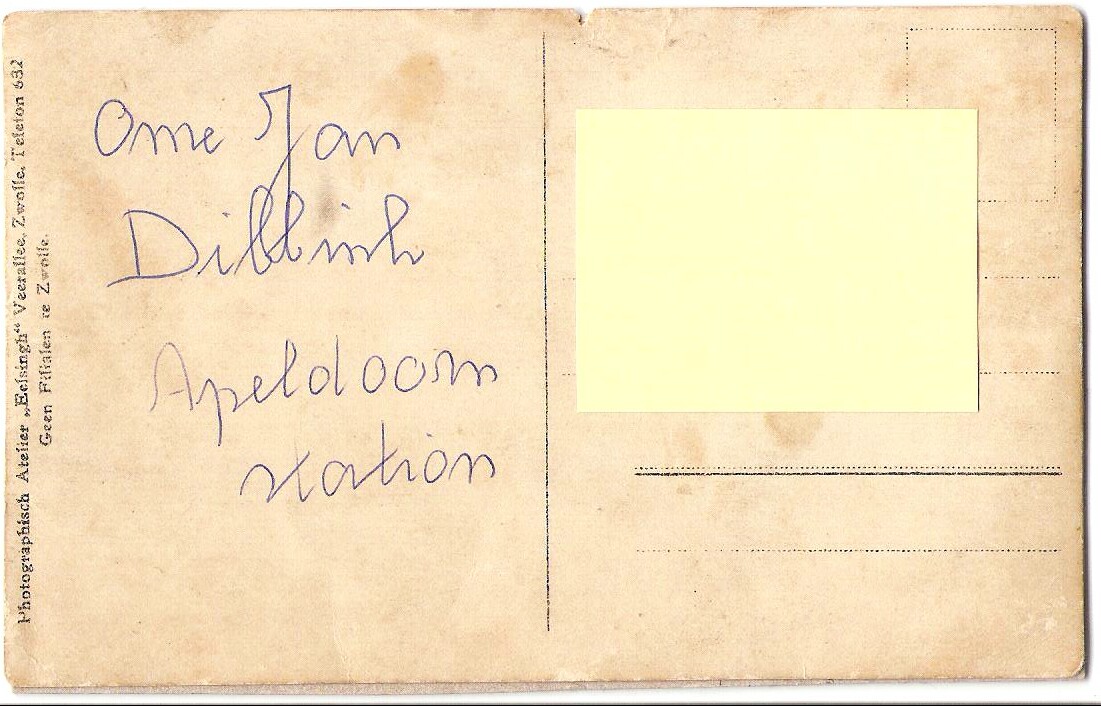 Ome Jan
Dibbinh
Apeldoorn
station
Photographisch Atelier „Eelsingh“ Veerallee, Zwolle. Telefon 632
Geen Filialen te Zwolle.